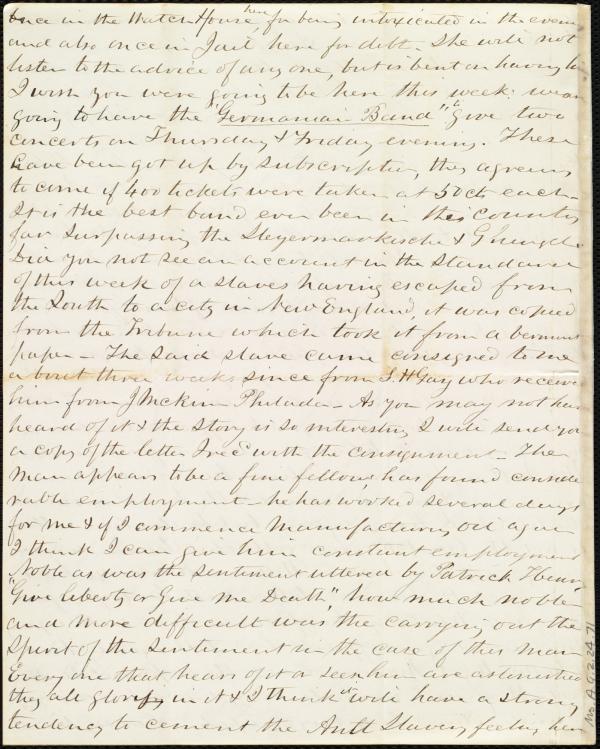 once in the Watch House here, for being intoxicated in the evening
and also once in Jail here for debt - She will not
listen to the advice of any one, but is bent on having
I wish you were going to be here this week. we are
going to have the "Germanian Band" to give two
concerts on Thursday & Friday evening. These
have been got up by subscription, they agreeing
to come if 400 tickets were taken at 50 cts each -
It is the best band ever been in this Country
far surpassing the Steyermarkische &
Did you not see an account in the Standard
of this week of a slaves having escaped from
the South to a city in New England, it was copied
from the Tribune which took it from a Vermont
paper - The said slave came consigned to me
about three weeks since from S. H Gay who received
him from J Mckim Philada - As you may not have
heard of it & the story is so interesting I will send you
a copy of the letter I recd with the consignment - The
man appears to be a fine fellow, has found conside
rable employment - he has worked several days
for me & if I commence manufacturing oil again
I think I can give him constant employment
Noble as was the sentiment uttered by Patrick Henry,
"Give liberty or Give me Death", how much nobler
and more difficult was the carrying out the
spirit of the sentiment in the case of this man
Every one that hears of it or sees him are astonished
they all glorify in it & I think it will have a strong
tendency to cement the Anti Slavery feeling here
Ms. A. 9.2.24.71